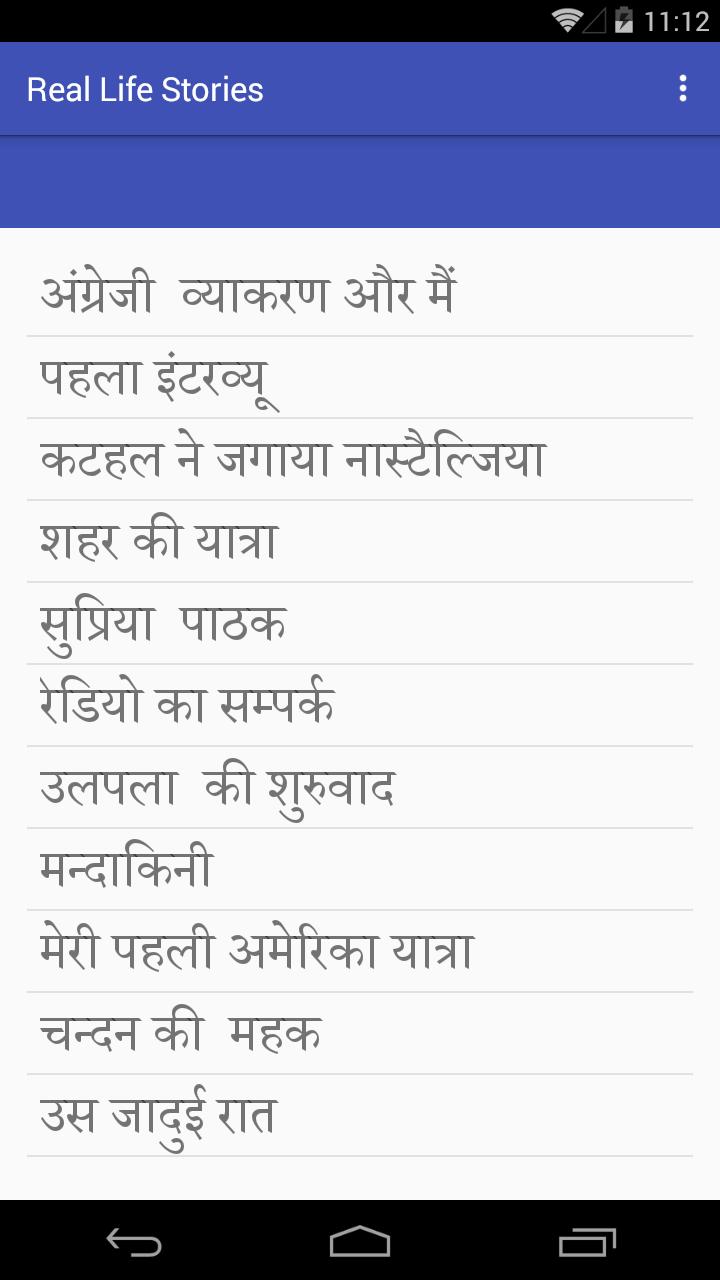 11:12
Real Life Stories
अंग्रेजी  व्याकरण और मैं
पहला इंटरव्यू
कटहल ने जगाया नास्टैल्जिया
शहर की यात्रा
सुप्रिया  पाठक
रेडियो का सम्पर्क
उलपला  की शुरुवाद
मन्दाकिनी
मेरी पहली अमेरिका यात्रा
चन्दन की  महक
उस जादुई रात